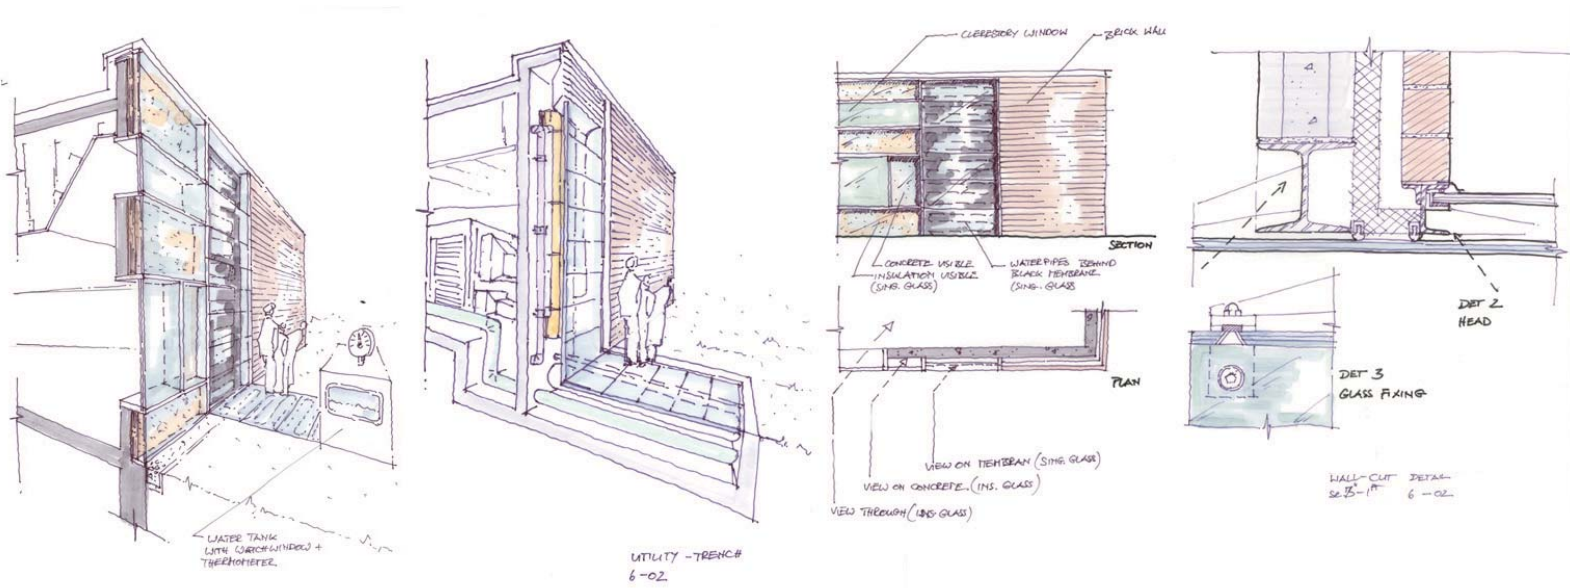 WATER TANK
WITH WATCHWINDOW +
THERMOMETER
UTILITY - TRENCH
6-02
CLERESTORY WINDOW
BRICK WALL
SECTION
CONCRETE VISIBLE
INSULATION VISIBLE
(SING. GLASS)
WATERPIPES BEHIND
BLACK MEMBRANE
(SING. GLASS
PLAN
VIEW ON MEMBRAN (SING. GLASS)
VIEW ON CONCRETE. (INS. GLASS)
VIEW THROUGH (INS. GLASS)
DET 2
HEAD
DET 3
GLASS FIXING
WALL-CUT DETAIL
6-02